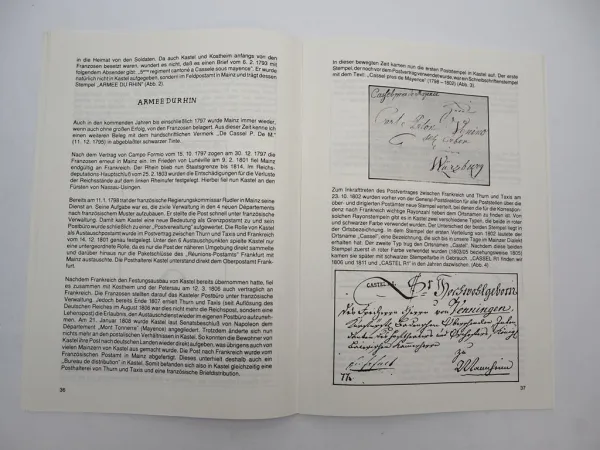 in die Heimat von den Soldaten. Da auch Kastel und Kostheim anfangs von den
Franzosen besetzt waren, wundert es nicht, daß es einen Brief vom 6. 2. 1793 mit
folgendem Absender gibt: „5ème regiment cantoné a Cassele sous mayence". Er wurde
natürlich nicht in Kastel aufgegeben, sondern im Feldpostamt in Mainz und trägt dessen
Stempel „ARMEE DU RHIN" (Abb. 2).
ARMEE DU RHIN
Auch in den kommenden Jahren bis einschließlich 1797 wurde Mainz immer wieder,
wenn auch ohne großen Erfolg, von den Franzosen belagert. Aus dieser Zeit kenne ich
einen weiteren Beleg mit dem handschriftlichen Vermerk „De Cassel P. De M."
(11. 12. 1795) in abgeblaßter schwarzer Tinte.
Nach dem Vertrag von Campo Formio vom 18. 10. 1797 zogen am 30. 12. 1797 die
Franzosen erneut in Mainz ein. Im Frieden von Lunéville am 9. 2. 1801 fiel Mainz
endgültig an Frankreich. Der Rhein blieb nun Staatsgrenze bis 1814. Im Reichs-
deputations-Hauptschluß vom 25. 2. 1803 wurden die Entschädigungen für die Verluste
der Reichsstände auf dem linken Rheinufer festgelegt. Hierbei fiel nun Kastel an den
Fürsten von Nassau-Usingen.
Bereits am 11. 1. 1798 tat der französische Regierungskommissar Rudler in Mainz seine
Dienst an. Seine Aufgabe war es, die zivile Verwaltung in den 4 neuen Départements
nach französischem Muster aufzubauen. Er stellte die Post schnell unter französische
Verwaltung. Damit kam Kastel eine neue Bedeutung als Grenzpostamt zu und sein
Postbüro wurde schließlich zu einer „Postverwaltung" aufgewertet. Die Rolle von Kastel
als Austauschpostamt wurde im Postvertrag zwischen Thurn und Taxis und Frankreich
vom 14. 12. 1801 genau festgelegt. Unter den 6 Austauschpunkten spielte Kastel nur
eine untergeordnete Rolle, da es nur die Post der näheren Umgebung direkt sammelte
und darüber hinaus nur die Paketschlüsse des „Reunions-Postamts" Frankfurt mit
Mainz austauschte. Die Posthalterei Kastel unterstand direkt dem Oberpostamt Frank-
furt.
Nachdem Frankreich den Festungsausbau von Kastel bereits übernommen hatte, fiel
es zusammen mit Kostheim und der Petersau am 12. 3. 1806 auch vertraglich an
Frankreich. Die Franzosen stellten darauf das Kasteler Postbüro unter französische
Verwaltung. Jedoch bereits Ende 1807 erhielt Thurn und Taxis (seit Auflösung des
Deutschen Reiches im August 1806 war dies nicht mehr die Reichspost, sondern eine
Lehenspost) die Erlaubnis, den Austauschdienst wieder im eigenen Postbüro aufzuneh-
men. Am 21. Januar 1808 wurde Kastel laut Senatsbeschluß von Napoleon dem
Département „Mont Tonnerre" (Mayence) angegliedert. Trotzdem änderte sich nun
nichts mehr an den postalischen Verhältnissen in Kastel. So konnten die Bewohner von
Kastel ihre Post nach deutschen Landen wieder direkt aufgeben, was übrigens auch von
vielen Mainzern von Kastel aus gemacht wurde. Die Post nach Frankreich wurde vom
Französischen Postamt in Mainz abgefertigt. Dieses unterhielt deshalb auch ein
„Bureau de distribution" in Kastel. Somit befanden sich also in Kastel gleichzeitig eine
Posthalterei von Thurn und Taxis und eine französische Briefdistribution.
36
In dieser bewegten Zeit kamen nun die ersten Poststempel in Kastel auf. Der erste
Stempel, der noch vor dem Postvertrag verwendet wurde, waren Schreibschriftenstempel
mit dem Text: „Cassel pres de Mayence" (1798 – 1802) (Abb. 3).
Zum Inkrafttreten des Postvertrages zwischen Frankreich und Thurn und Taxis am
23. 10. 1802 mussten vorher von der General-Postdirektion für alle Poststellen über die
ober- und dirigierten Postämter neue Stempel verteilt, bei denen die für die Korrespon-
denz nach Frankreich wichtig Rayonzahl neben dem Ortsnamen zu finden ist. Von
solchen Rayonstempeln gibt es in Kastel zwei verschiedene Typen, die beide in roter
und schwarzer Farbe verwendet wurden. Der Unterschied der beiden Stempel liegt in
der Ortsbezeichnung. In dem Stempel der ersten Type von 1802 lautete der
Ortsname „Cassel", eine Bezeichnung, die sich bis in unsere Tage im Mainzer Dialekt
erhalten hat. Der zweite Typ trug den Ortsnamen „Castel". Nachdem diese beiden
Stempel zuerst in roter Farbe verwendet wurden (1803/05 beziehungsweise 1805)
kamen sie später mit schwarzer Stempelfarbe in Gebrauch „CASSEL R1 finden wir
1806 und 1811 und „CASTEL R.1" in den Jahren dazwischen. (Abb. 4)
CASTEL R.1
Hochwohlgeborn
Jenningen
zu
Mannheim
37